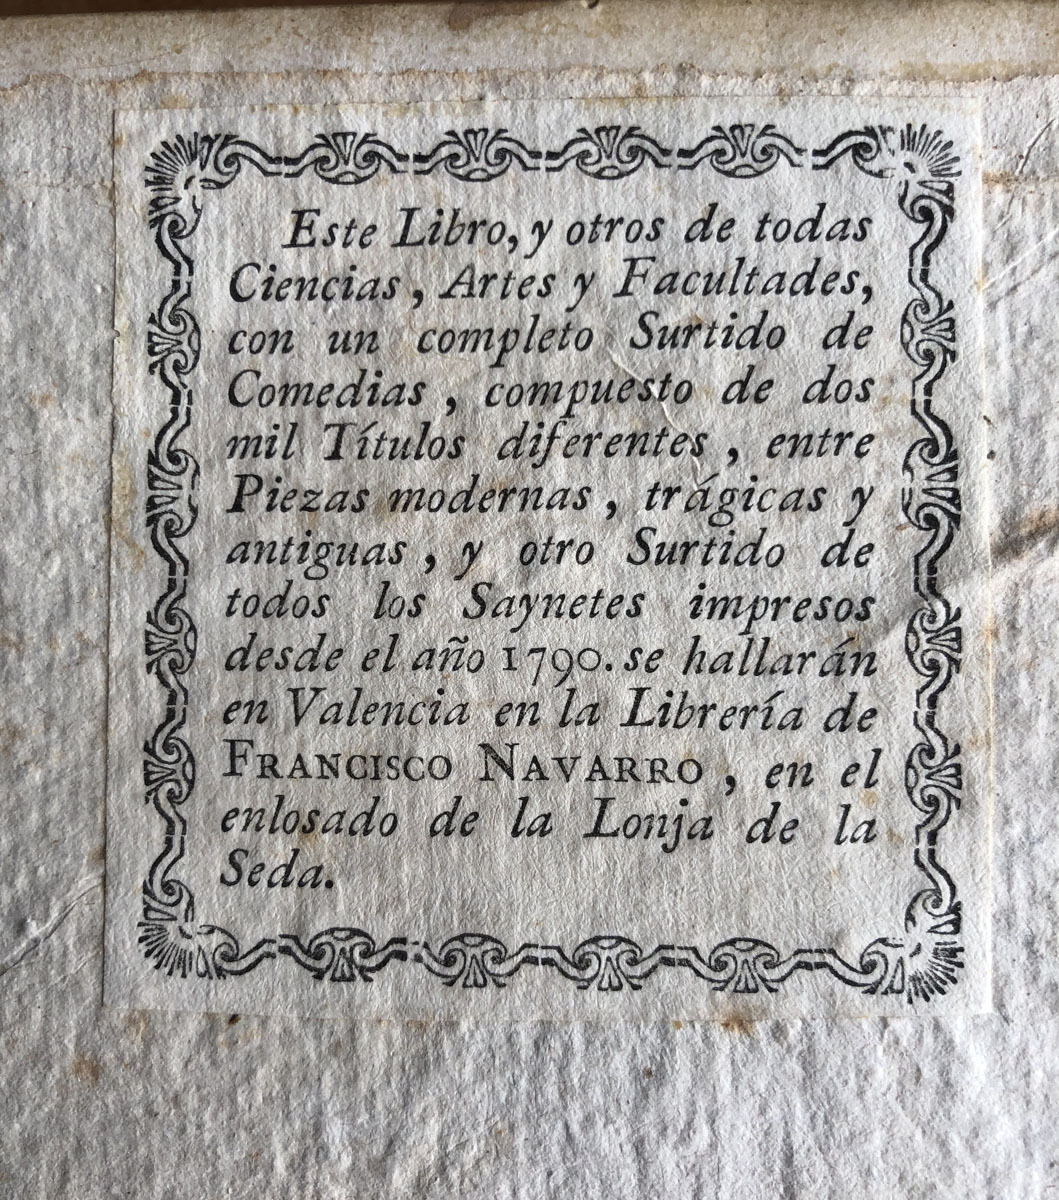 Este Libro, y otros de todas
Ciencias, Artes y Facultades,
con un completo Surtido de
Comedias, compuesto de dos
mil Títulos diferentes, entre
Piezas modernas, trágicas y
antiguas, y otro Surtido de
todos los Saynetes impresos
desde el año 1790. se hallarán
en Valencia en la Librería de
FRANCISCO NAVARRO, en el
enlosado de la Lonja de la
Seda.